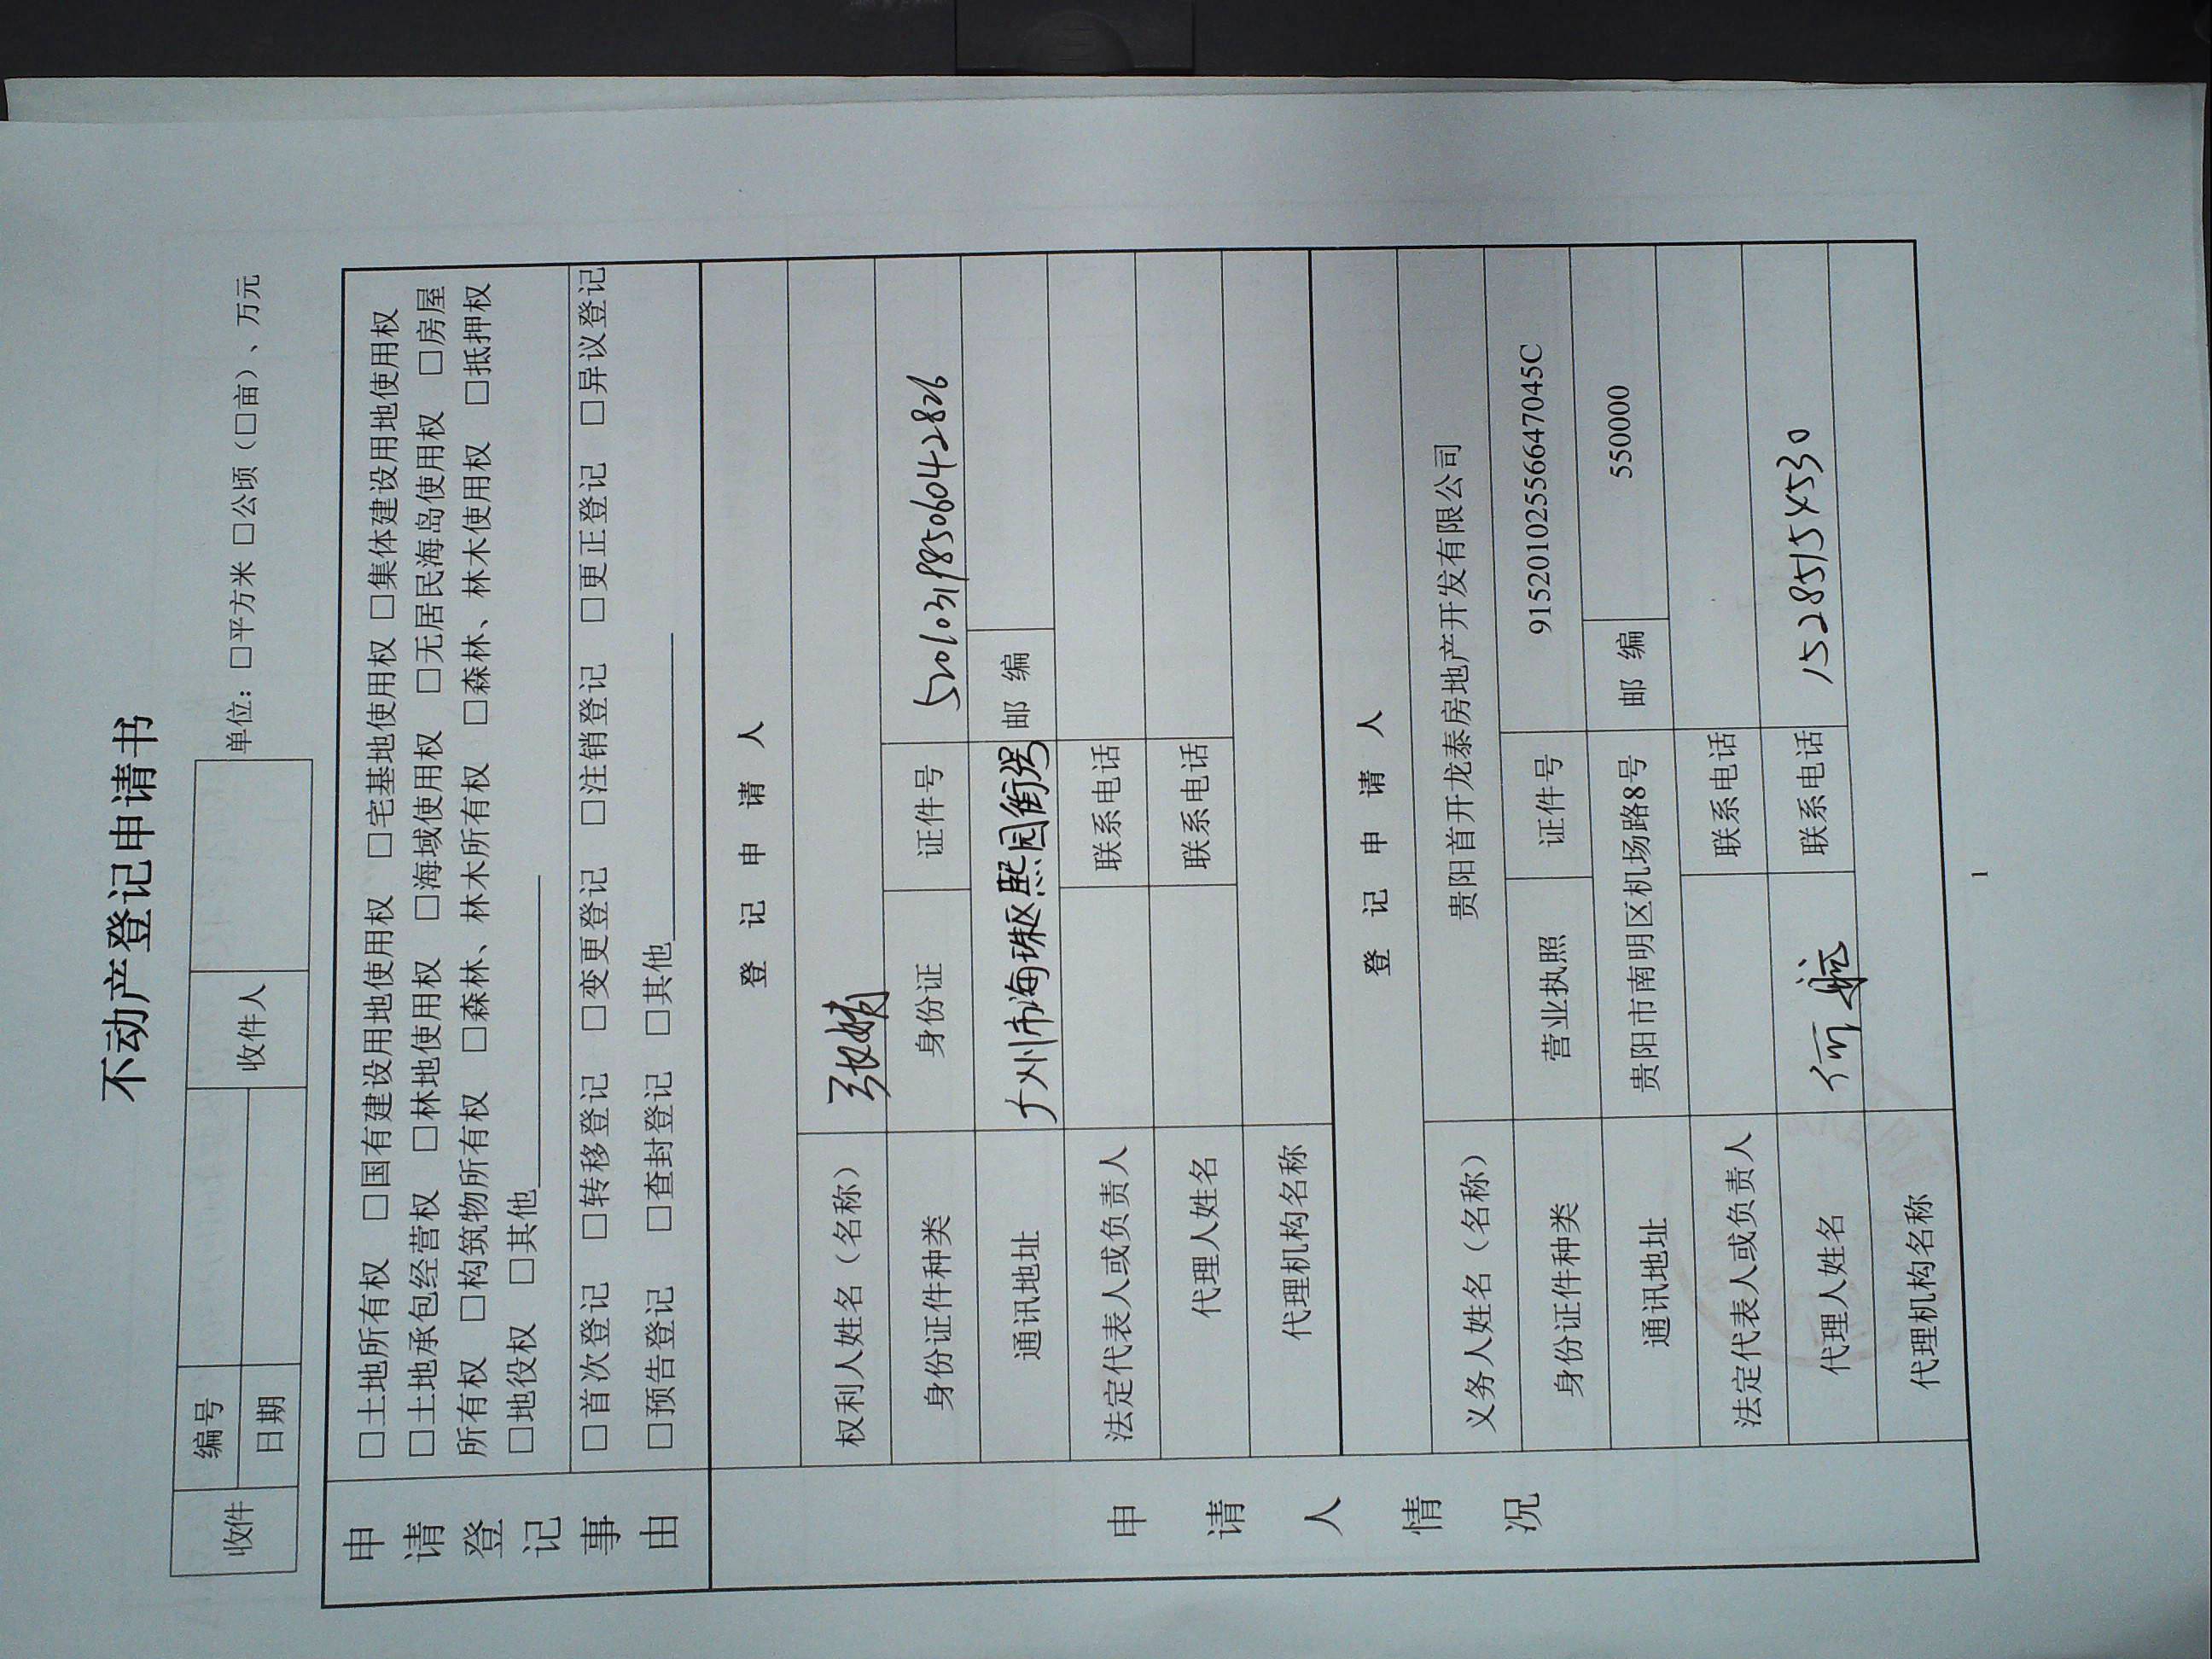 不动产登记申请书
收件 编号 收件人 单位：□平方米 □公顷（□亩）、万元
日期
申请登记事由
□土地所有权 □国有建设用地使用权 □宅基地使用权 □集体建设用地使用权
□土地承包经营权 □林地使用权 □海域使用权 □无居民海岛使用权 □房屋
所有权 □构筑物所有权 □森林、林木所有权 □森林、林木使用权 □抵押权
□地役权 □其他
□首次登记 □转移登记 □变更登记 □注销登记 □更正登记 □异议登记
□预告登记 □查封登记 □其他
申请人情况
登记申请人
权利人姓名（名称） 张婧
身份证件种类 身份证 证件号 520103198506042826
通讯地址 广州市海珠区熙园街号 邮编
法定代表人或负责人 联系电话
代理人姓名 联系电话
代理机构名称
登记申请人
义务人姓名（名称） 贵阳首开龙泰房地产开发有限公司
身份证件种类 营业执照 证件号 91520102556647045C
通讯地址 贵阳市南明区机场路8号 邮编 550000
法定代表人或负责人 联系电话
代理人姓名 何航 联系电话 15285154530
代理机构名称
1